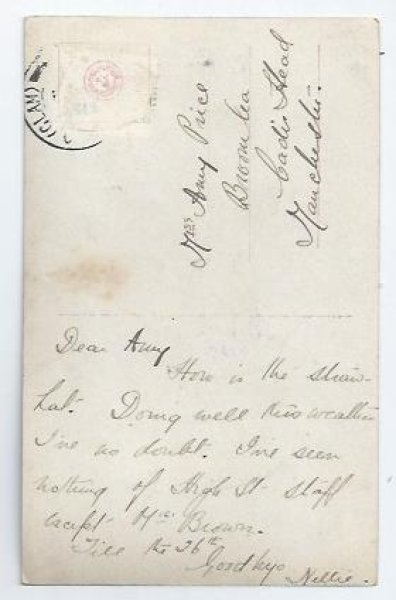 (GLAM)
Miss Amy Price
Broom Lea
Cadis Head
Manchester.
Dear Amy
How is the straw-
hat. Doing well this weather
I've no doubt. I've seen
nothing of High St staff
except Mr Brown.
Till the 26th
Goodbye
Nellie.